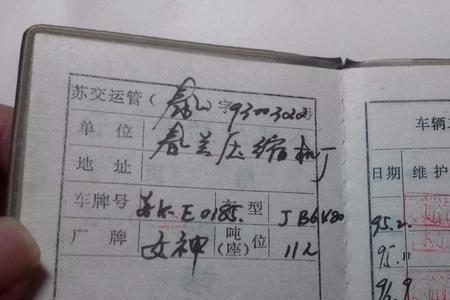 苏交运管(泰)字9300302号
单位 春兰压缩机厂
地址
车牌号 苏K.E0185 车型 JB6480
厂牌 女神 吨(座)位 112
车辆
日期 维护
95.2.
95.11
96.9